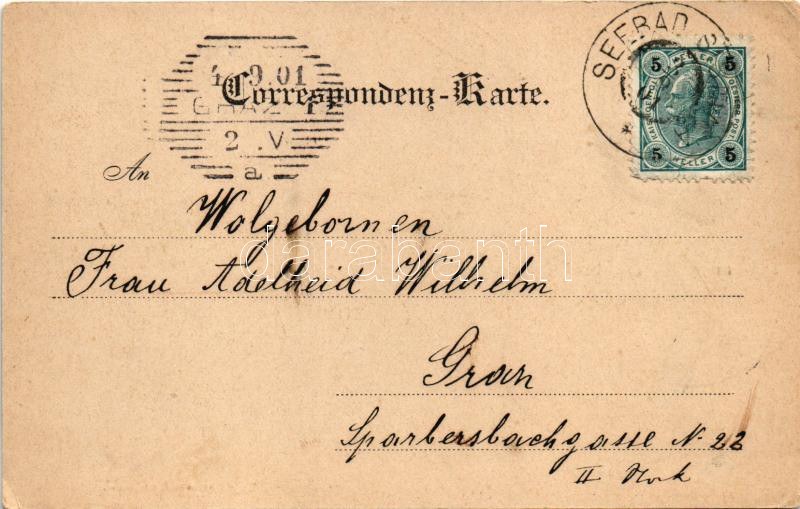 SEEBAD
5 HELLER 5
5 HELLER 5
4 9.01
GRAZ
2 .V
a
Correspondenz-Karte.
An
Wolgebornen
Frau Adelheid Wilhelm
darabanth
Gran
Sparbersbachgasse N. 22
II Stock